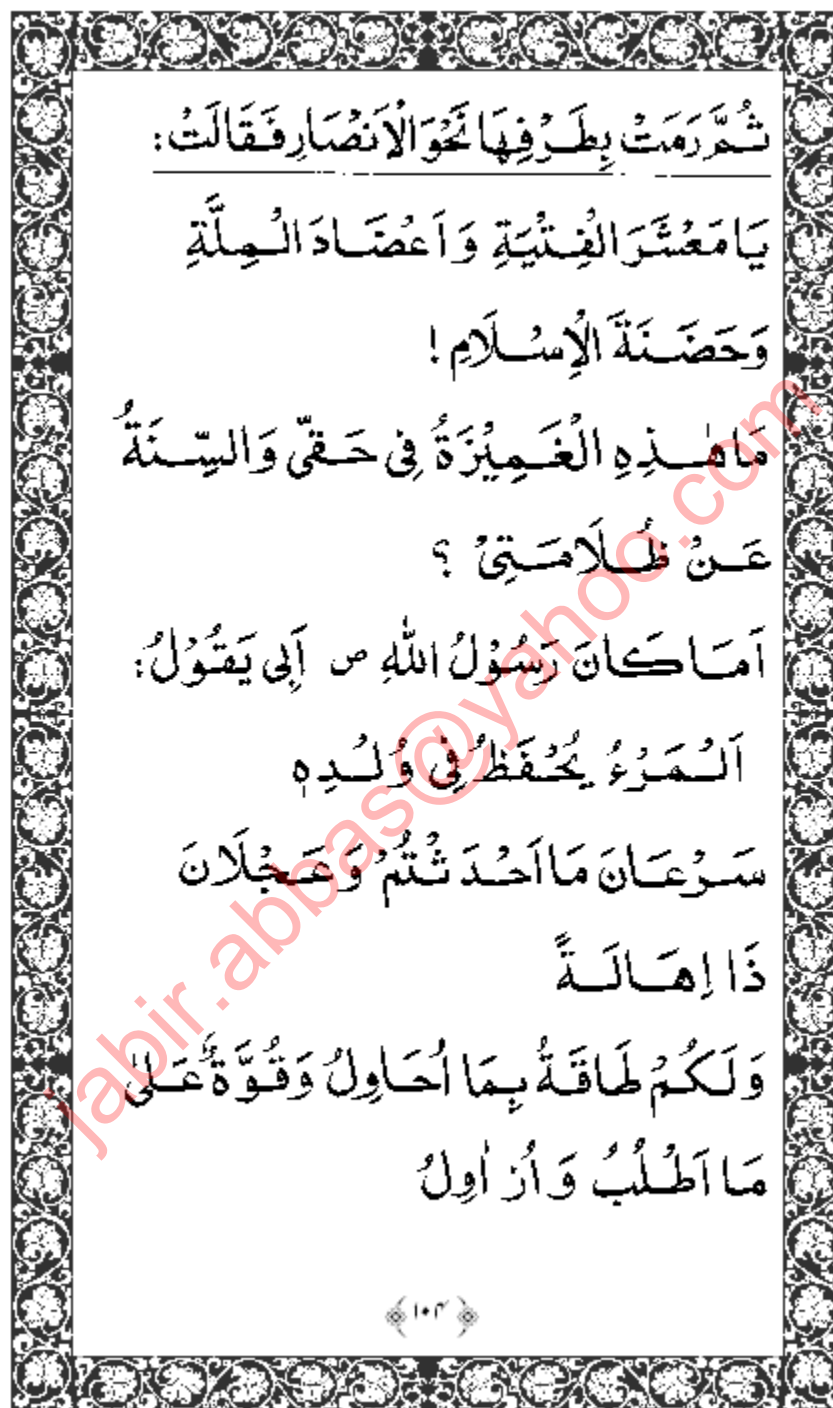 ثُمَّ رَمَتْ بِطَرْفِهَا نَحْوَ الْاَنْصَارِ فَقَالَتْ:
يَا مَعْشَرَ الْفِتْيَةِ وَاَعْضَادَ الْمِلَّةِ
وَحَضَنَةَ الْاِسْلَامِ !
مَا هٰذِهِ الْغَمِيْزَةُ فِي حَقِّي وَالسِّنَةُ
عَنْ ظُلَامَتِىْ ؟
اَمَا كَانَ رَسُوْلُ اللّٰهِ ص اَبِى يَقُوْلُ:
اَلْمَرْءُ يُحْفَظُ فِيْ وُلْدِهٖ
سَرْعَانَ مَا اَحْدَثْتُمْ وَعَجْلَانَ
ذَا اِهَالَةً
وَلَكُمْ طَاقَةٌ بِمَا اُحَاوِلُ وَقُوَّةٌ عَلٰى
مَا اَطْلُبُ وَاُزَاوِلُ
۱۰۴
jabir.abbas@yahoo.com